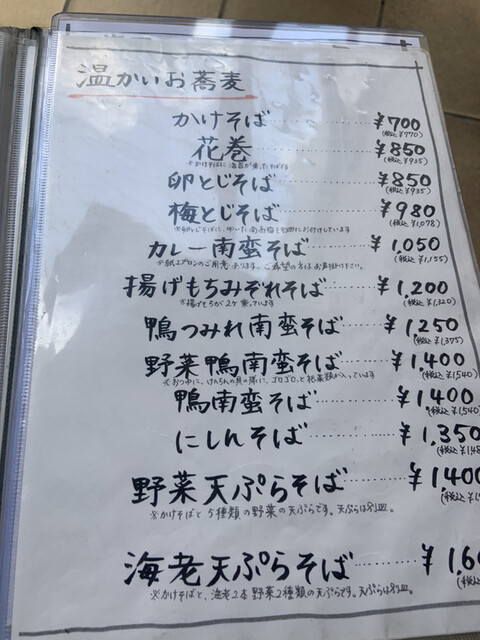 温かいお蕎麦
かけそば ¥700
(税込 ¥770)
花巻 ¥850
※かけそばに海苔が乗ったそばです (税込 ¥935)
卵とじそば ¥850
(税込 ¥935)
梅とじそば ¥980
(税込 ¥1,078)
カレー南蛮そば ¥1,050
※紙エプロンのご用意あります。ご希望の方はお声掛け下さい。 (税込 ¥1,155)
揚げもちみぞれそば ¥1,200
※揚げもちが2ヶ乗っています (税込 ¥1,320)
鴨つみれ南蛮そば ¥1,250
(税込 ¥1,375)
野菜鴨南蛮そば ¥1,400
※おつゆに、けんちんの具の様に、ゴロゴロと根菜類が入っています (税込 ¥1,540)
鴨南蛮そば ¥1,400
(税込 ¥1,540)
にしんそば ¥1,350
(税込 ¥1,48
野菜天ぷらそば ¥1,400
※かけそばと5種類の野菜の天ぷらです。天ぷらは別皿。 (税込
海老天ぷらそば ¥1,6
※かけそばと、海老2本 野菜2種類の天ぷらです。天ぷらは別皿。 (税込